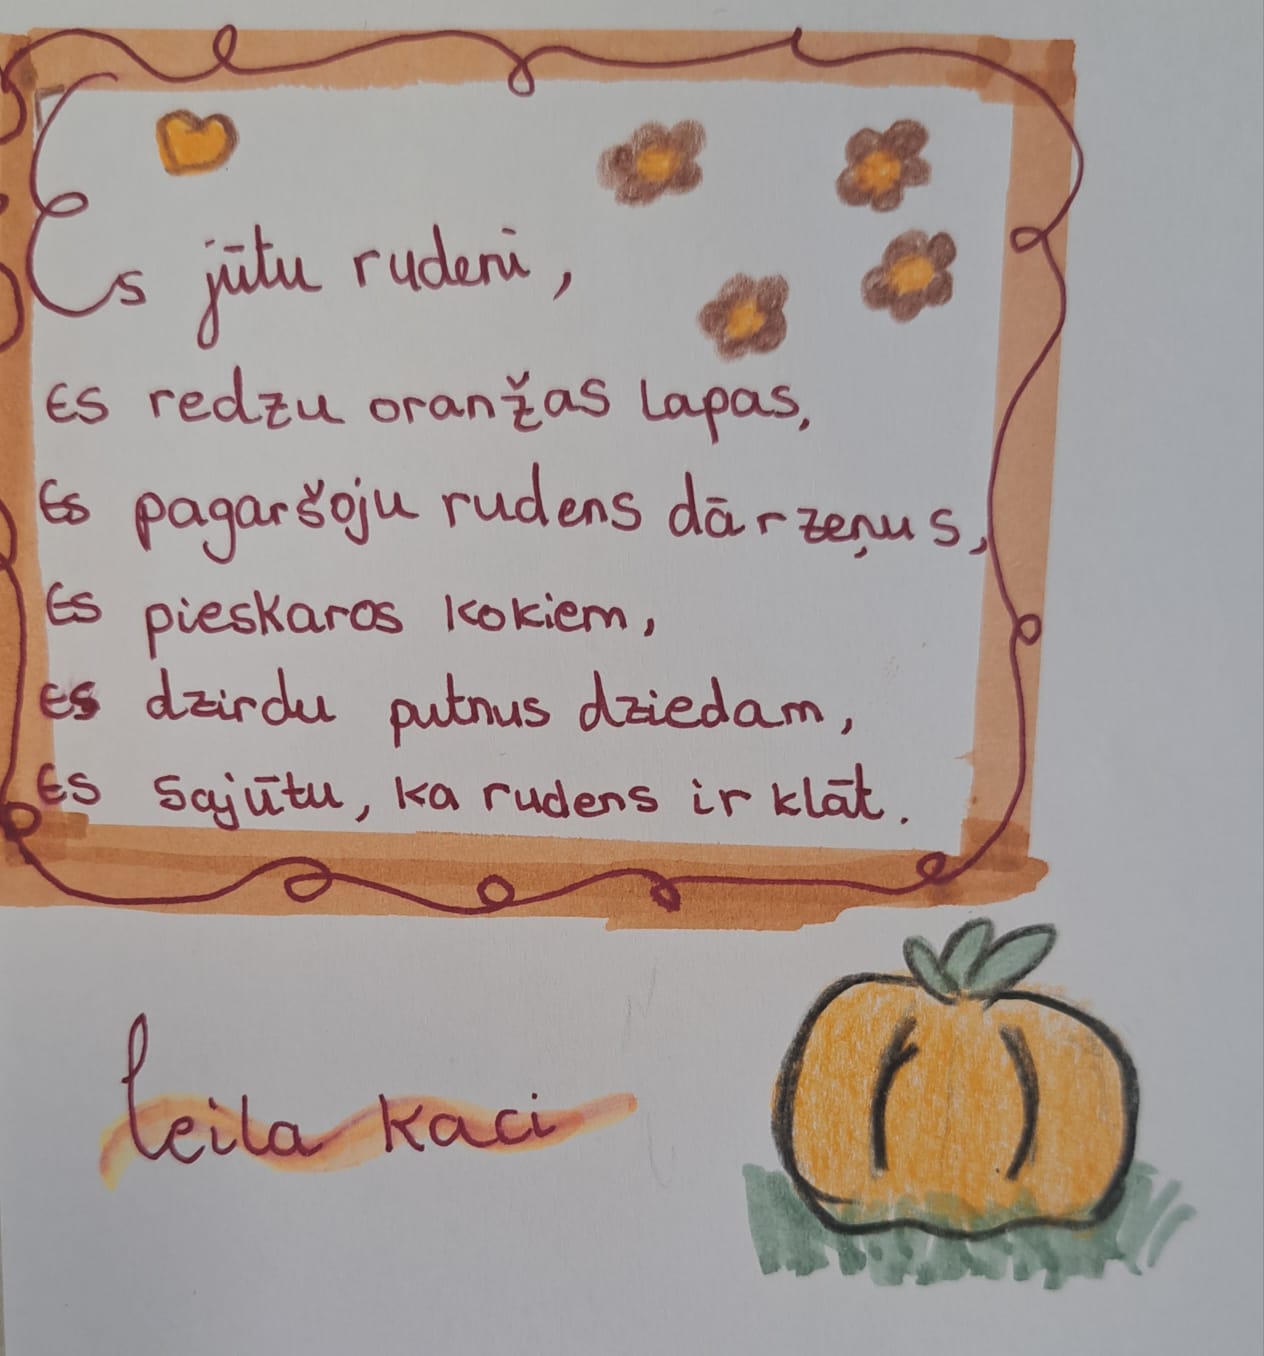 Es jūtu rudeni,
Es redzu oranžas lapas,
Es pagaršoju rudens dārzeņus,
Es pieskaros kokiem,
Es dzirdu putnus dziedam,
Es sajūtu, ka rudens ir klāt.
Leila kaci